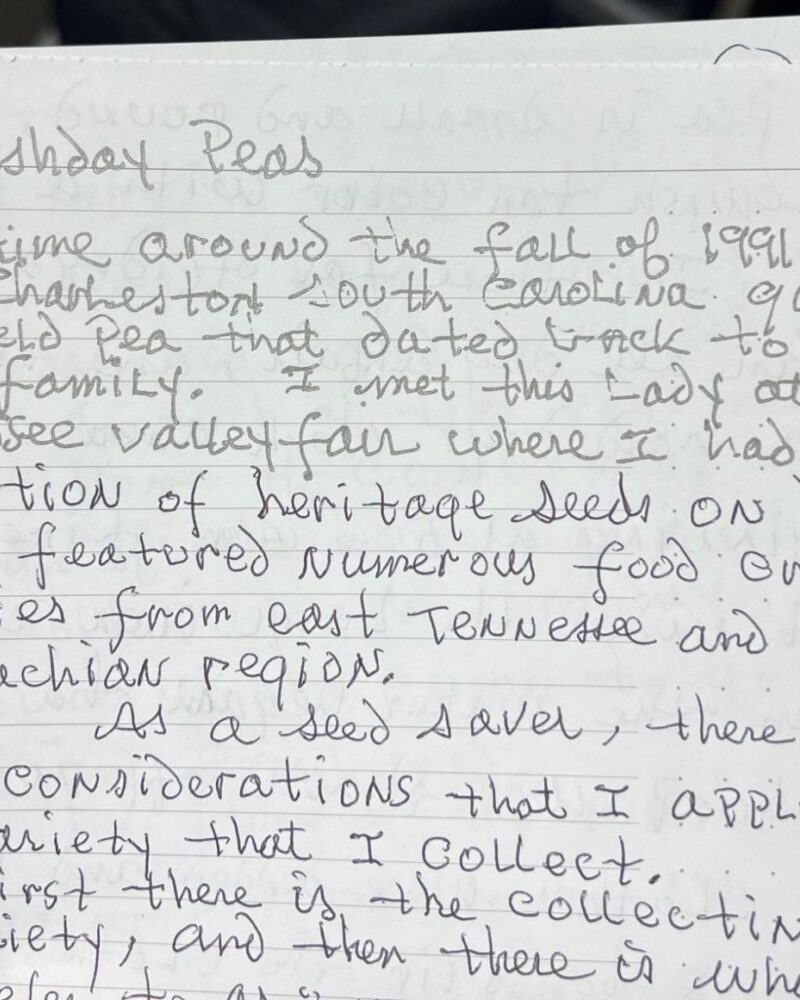 shday Peas
ime around the fall of 1991
Charleston South Carolina ga
eld Pea that dated back to
family. I met this Lady at
see valley fair where I had
tion of heritage seeds on
featured numerous food
ies from east Tennessee and
achian region.
As a seed saver, there
considerations that I appl
ariety that I collect.
irst there is the collectin
iety, and then there is wh